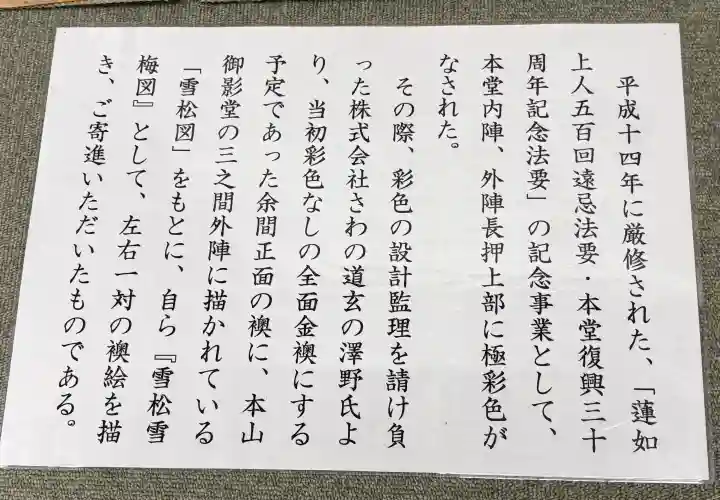 平成十四年に厳修された、「蓮如
上人五百回遠忌法要・本堂復興三十
周年記念法要」の記念事業として、
本堂内陣、外陣長押上部に極彩色が
なされた。
その際、彩色の設計監理を請け負
った株式会社さわの道玄の澤野氏よ
り、当初彩色なしの全面金襖にする
予定であった余間正面の襖に、本山
御影堂の三之間外陣に描かれている
「雪松図」をもとに、自ら『雪松雪
梅図』として、左右一対の襖絵を描
き、ご寄進いただいたものである。